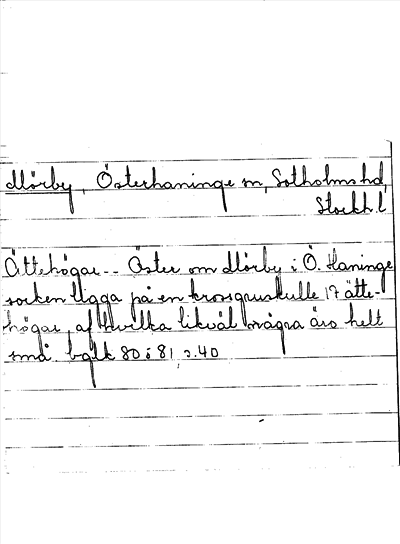 Mörby, Österhaninge sn, Sotholms hd,
Stockh.l
Ättehögar -- Öster om Mörby i Ö. Haninge
socken ligga på en krossgruskulle 17 ätte-
högar, af hvilka likväl några äro helt
små. bglk 80 o 81 s. 40